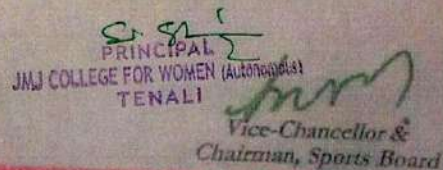 PRINCIPAL
JMJ COLLEGE FOR WOMEN (Autonomous)
TENALI
Vice-Chancellor &
Chairman, Sports Board